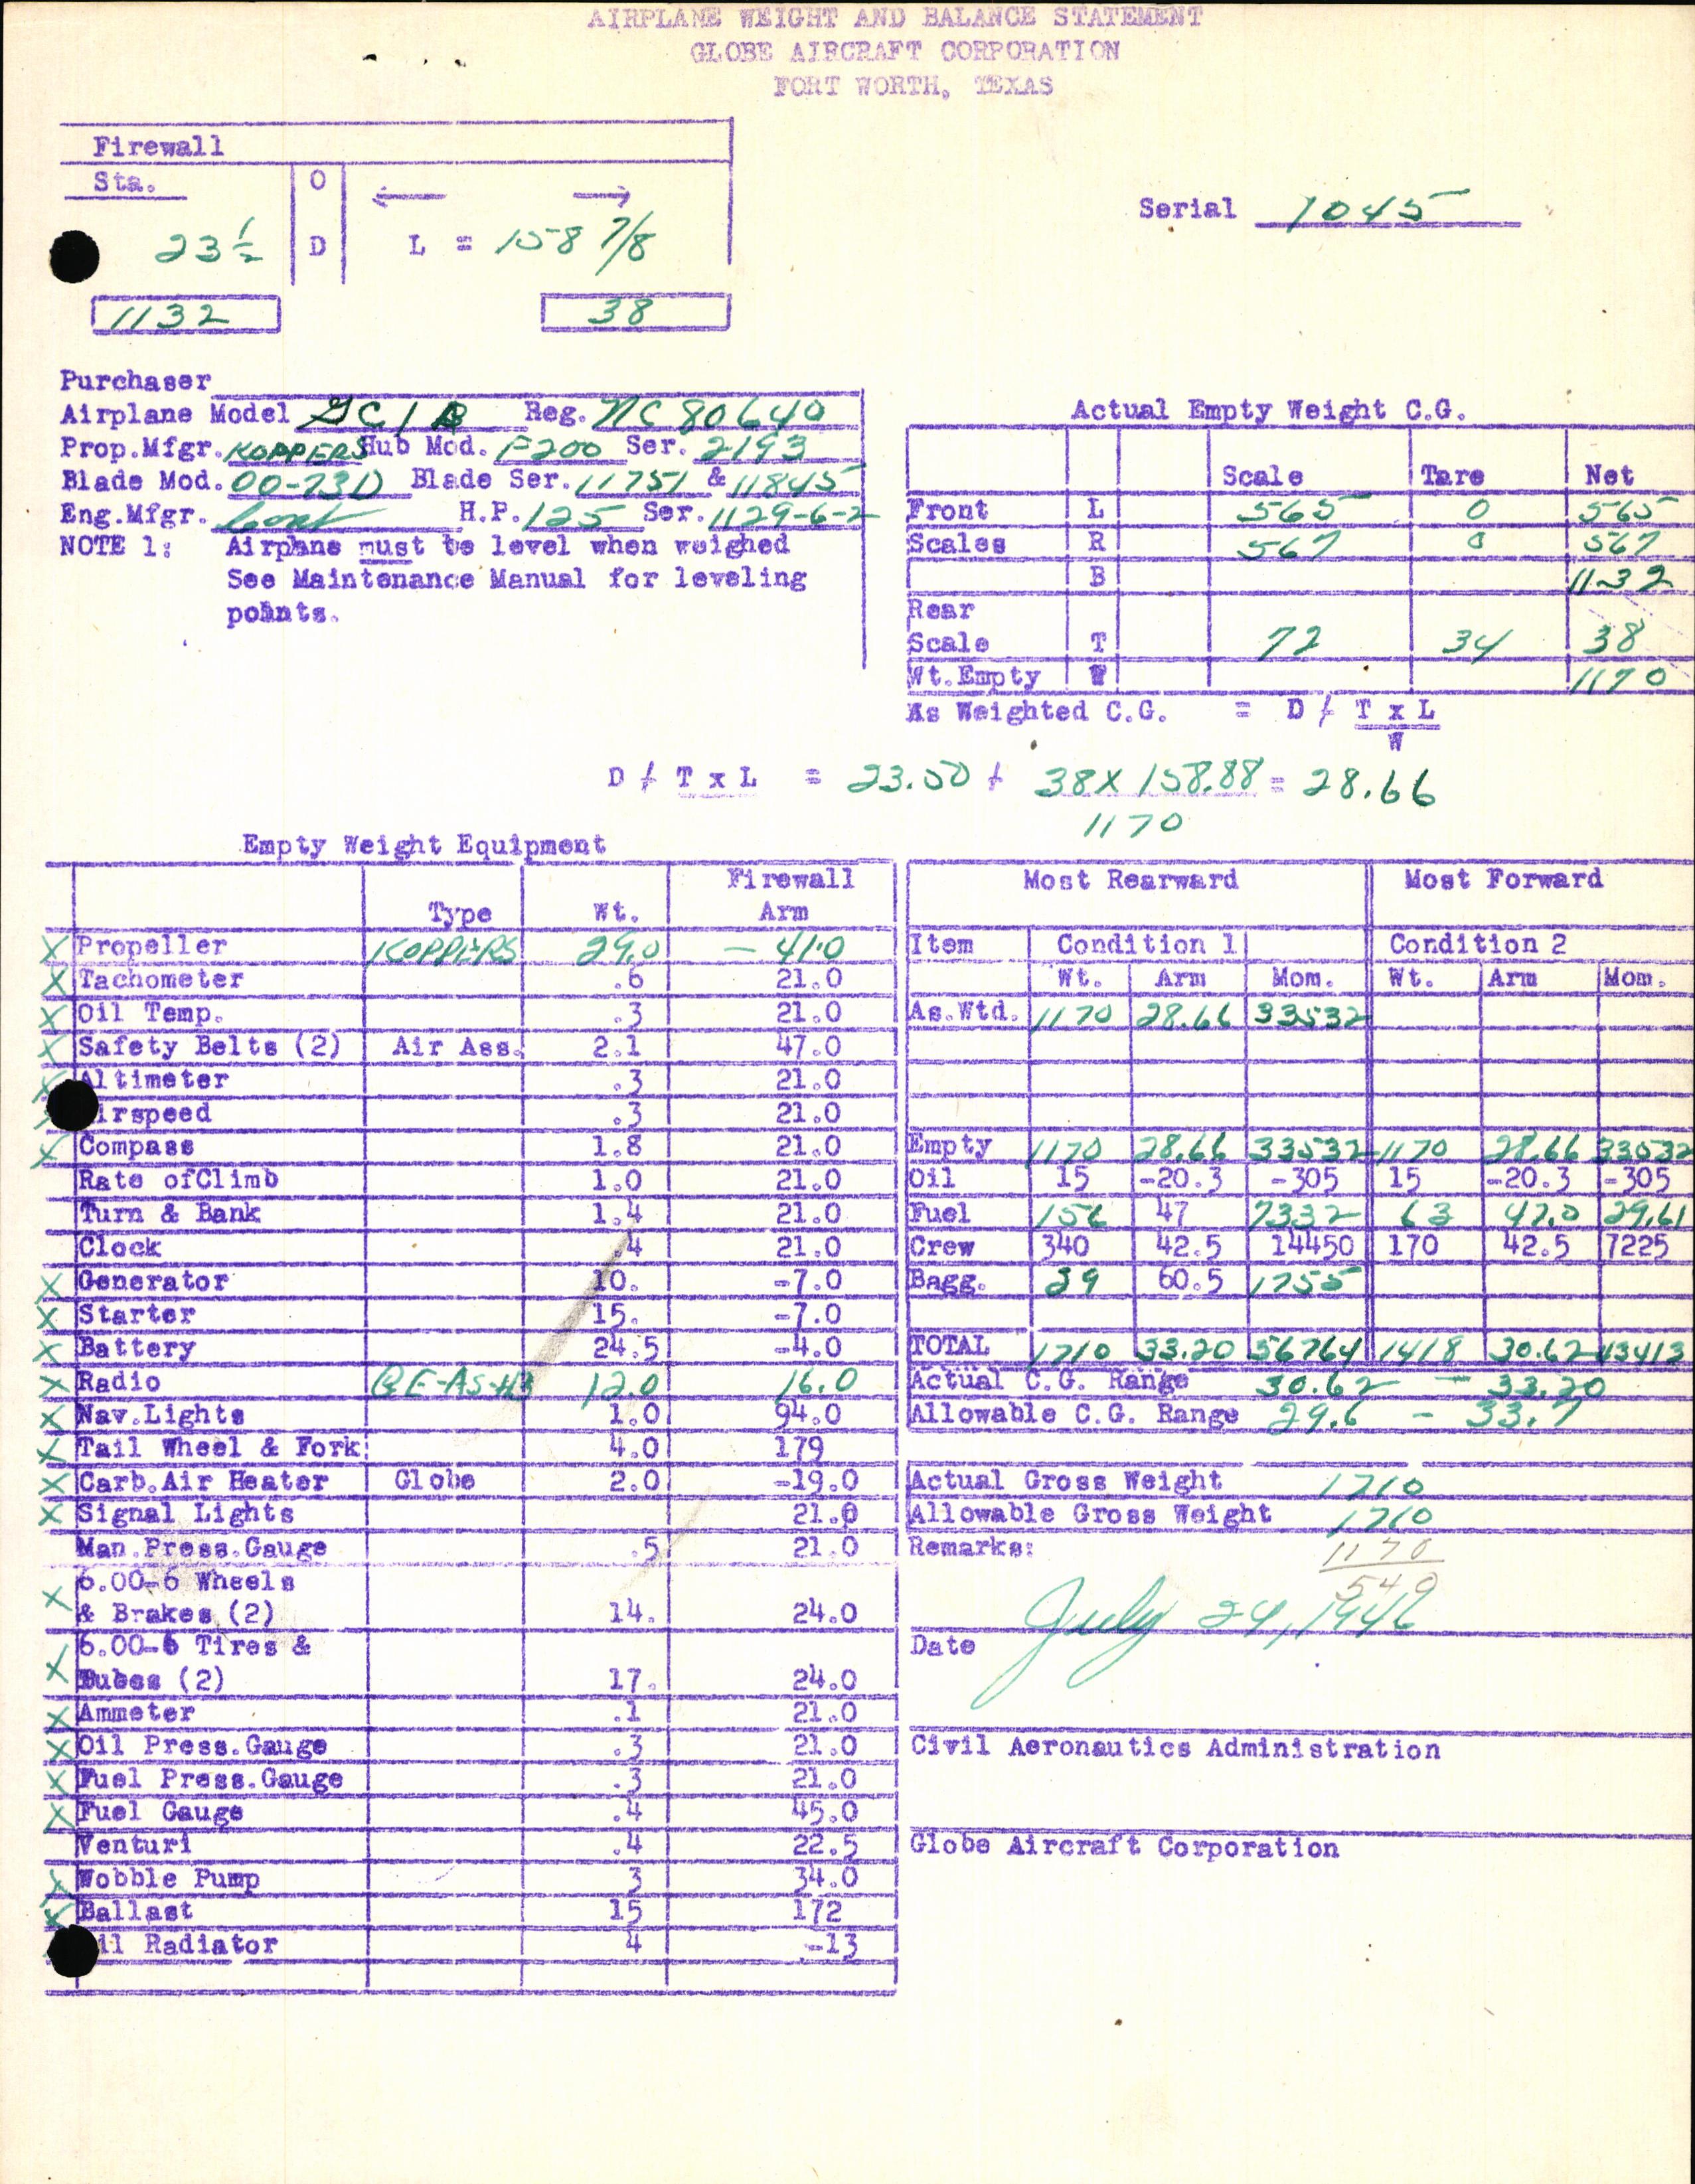 AIRPLANE WEIGHT AND BALANCE STATEMENT
GLOBE AIRCRAFT CORPORATION
FORT WORTH, TEXAS
Firewall
Sta. O ← →
23 1/2 D L = 158 7/8
1132 38
Serial 1045
Purchaser
Airplane Model GC1B Reg. NC80640
Prop.Mfgr. KOPPERS Hub Mod. F200 Ser. 2193
Blade Mod. 00-73D Blade Ser. 11751 & 11845
Eng.Mfgr. Cont H.P. 125 Ser. 1129-6-2
NOTE 1: Airplane must be level when weighed
See Maintenance Manual for leveling
points.
Actual Empty Weight C.G.
Scale Tare Net
Front L 565 0 565
Scales R 567 0 567
B 1132
Rear
Scale T 72 34 38
Wt.Empty W 1170
As Weighted C.G. = D / T x L
W
D / T x L = 23.50 / 38 X 158.88 = 28.66
1170
Empty Weight Equipment
Firewall
Type Wt. Arm
X Propeller KOPPERS 29.0 - 41.0
X Tachometer .6 21.0
X Oil Temp. .3 21.0
X Safety Belts (2) Air Ass. 2.1 47.0
X Altimeter .3 21.0
X irspeed .3 21.0
X Compass 1.8 21.0
Rate ofClimb 1.0 21.0
Turn & Bank 1.4 21.0
Clock .4 21.0
X Generator 10. -7.0
X Starter 15. -7.0
X Battery 24.5 -4.0
X Radio 12.0 16.0
X Nav.Lights 1.0 94.0
X Tail Wheel & Fork 4.0 179
X Carb.Air Heater Globe 2.0 -19.0
X Signal Lights 21.0
Man.Press.Gauge .5 21.0
X 6.00-6 Wheels
& Brakes (2) 14. 24.0
X 6.00-6 Tires &
Tubes (2) 17. 24.0
X Ammeter .1 21.0
X Oil Press.Gauge .3 21.0
X Fuel Press.Gauge .3 21.0
X Fuel Gauge .4 45.0
Venturi .4 22.5
X Wobble Pump 3 34.0
X Ballast 15 172
il Radiator 4 -13
Most Rearward Most Forward
Item Condition 1 Condition 2
Wt. Arm Mom. Wt. Arm Mom.
As.Wtd. 1170 28.66 33532
Empty 1170 28.66 33532 1170 28.66 33532
Oil 15 -20.3 -305 15 -20.3 -305
Fuel 156 47 7332 63 47.0 29.61
Crew 340 42.5 14450 170 42.5 7225
Bagg. 29 60.5 1755
TOTAL 1710 33.20 56764 1418 30.62 43413
Actual C.G. Range 30.62 - 33.20
Allowable C.G. Range 29.6 - 33.7
Actual Gross Weight 1710
Allowable Gross Weight 1710
Remarks: 1170
540
July 24, 1946
Date
Civil Aeronautics Administration
Globe Aircraft Corporation